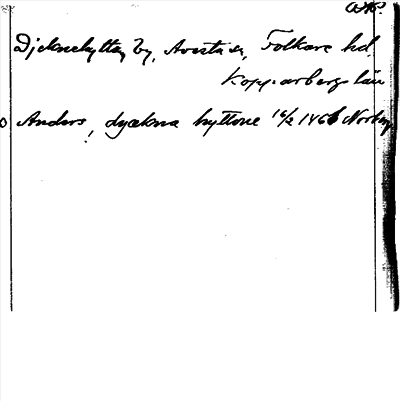 Djeknehyttan by, Avesta sn, Folkare hd,
Kopparbergs län
Anders, dyækna hyttone 16/2 1466 Norby